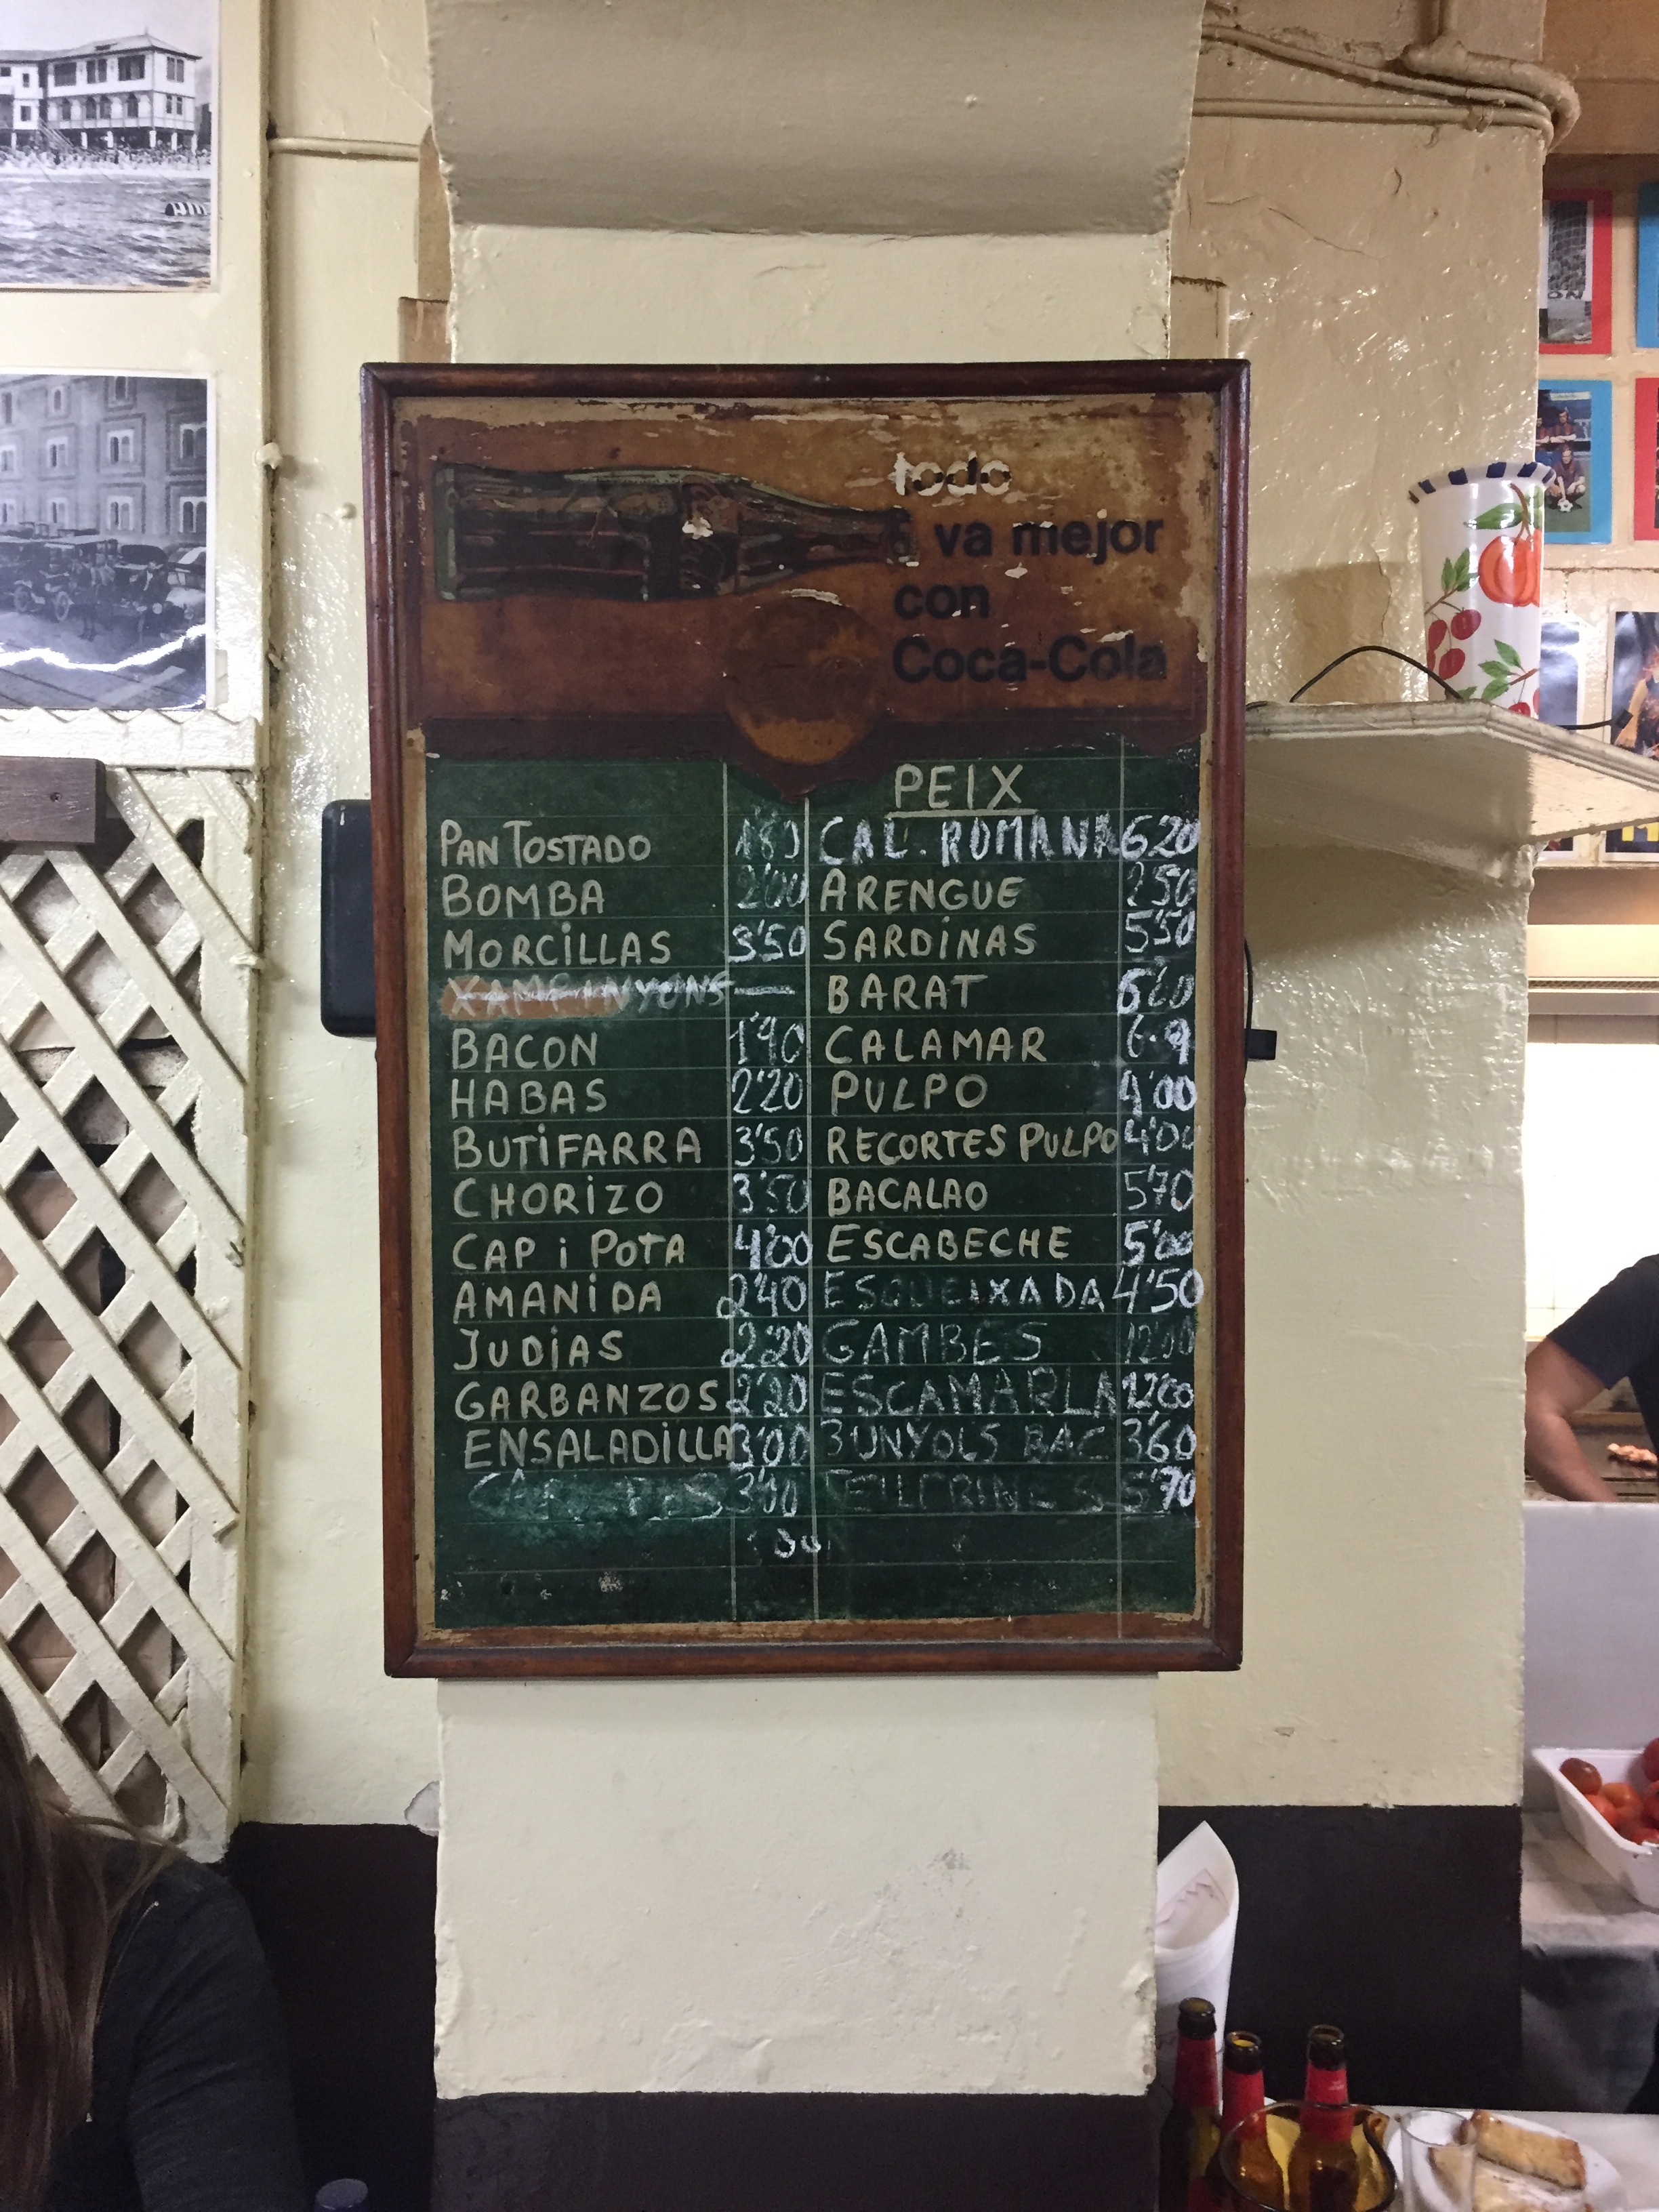 todo
va mejor
con
Coca-Cola
PEIX
PAN TOSTADO 1'80 CAL. ROMANA 6'20
BOMBA 2'00 ARENGUE 2'50
MORCILLAS 3'50 SARDINAS 5'50
XAMPINYONS — BARAT
BACON 1'90 CALAMAR
HABAS 2'20 PULPO
BUTIFARRA 3'50 RECORTES PULPO 4'00
CHORIZO 3'50 BACALAO 5'70
CAP i POTA 4'00 ESCABECHE 5'00
AMANIDA 2'40 ESQUEIXADA 4'50
JUDIAS 2'20 GAMBES 12'00
GARBANZOS 2'20 ESCAMARLA 12'00
ENSALADILLA 3'00 BUNYOLS BAC 3'60
3'00 TELLERINES 5'70